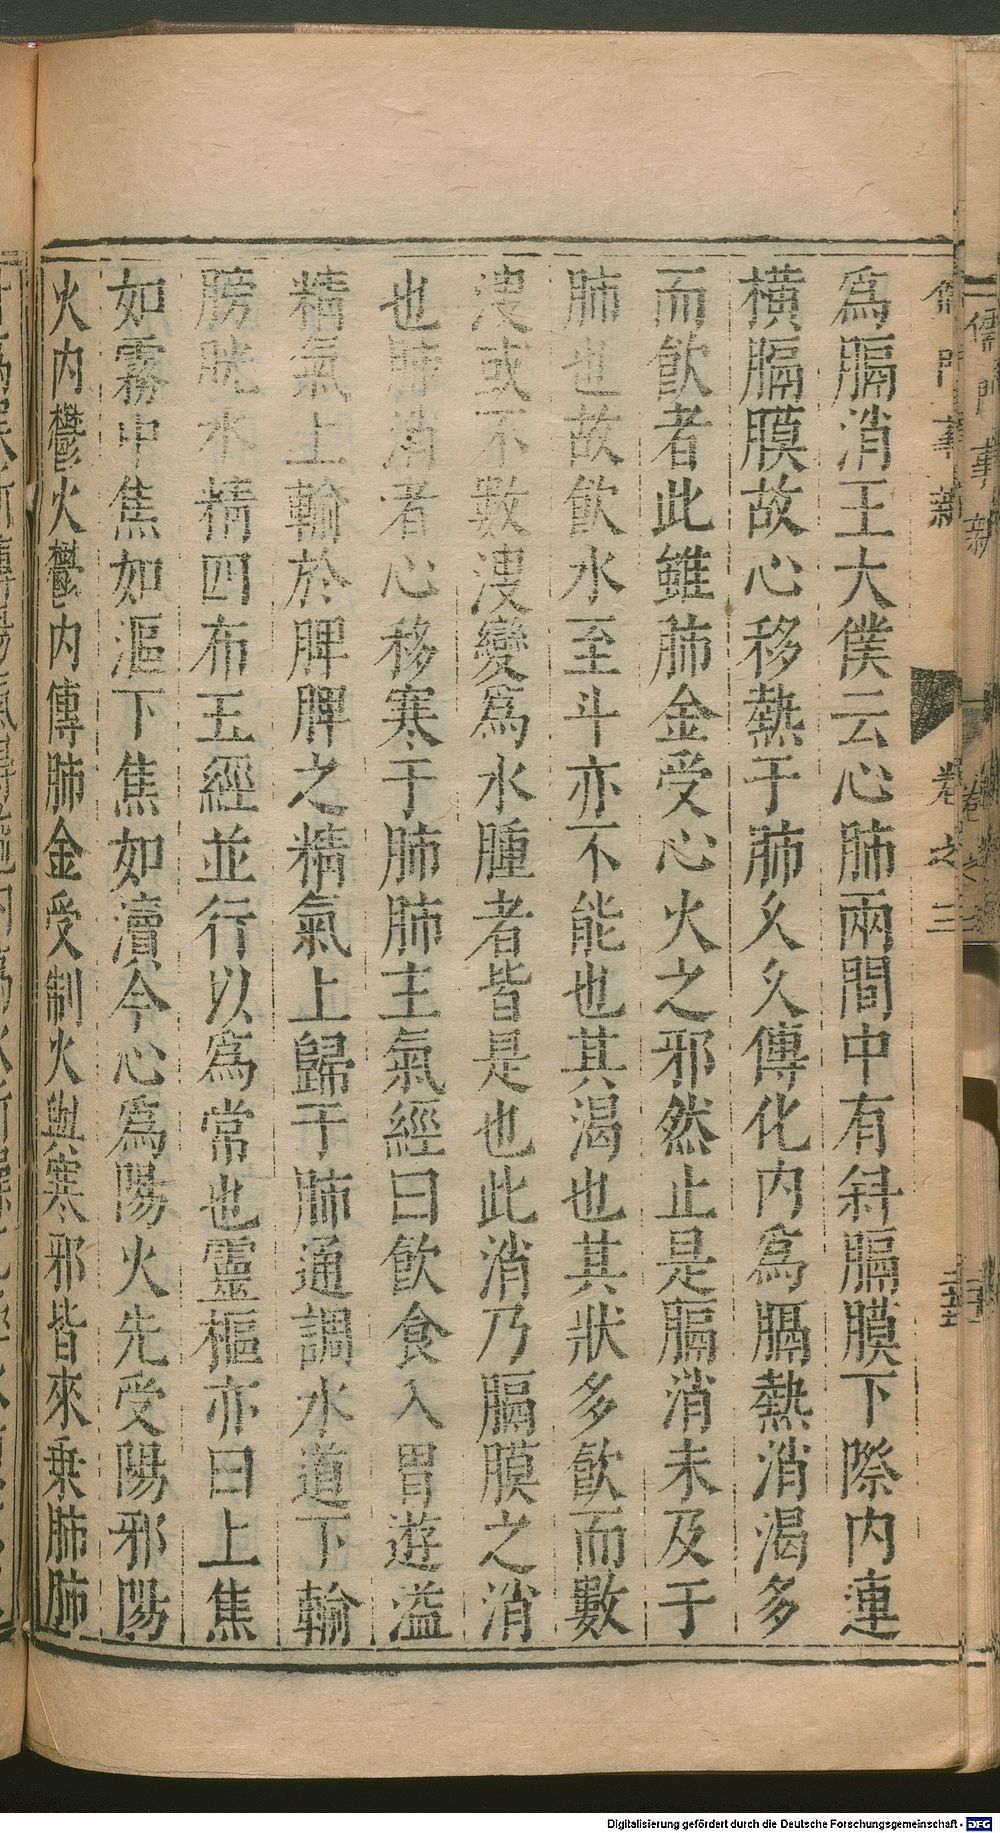 為膈消王大僕云心肺兩間中有斜膈膜下際內連
橫膈膜故心移熱于肺久久傳化內為膈熱消渴多
而飲者此雖肺金受心火之邪然止是膈消未及于
肺也故飲水至斗亦不能也其渴也其狀多飲而數
溲或不數溲變為水腫者皆是也此消乃膈膜之消
也肺消者心移寒于肺肺主氣經曰飲食入胃遊溢
精氣上輸於脾脾之精氣上歸于肺通調水道下輸
膀胱水精四布五經並行以為常也靈樞亦曰上焦
如霧中焦如漚下焦如瀆今心為陽火先受陽邪陽
火內鬱火鬱內傳肺金受制火與寒邪皆來乗肺肺
儒門事新
卷之三
Digitalisierung gefördert durch die Deutsche Forschungsgemeinschaft - DFG